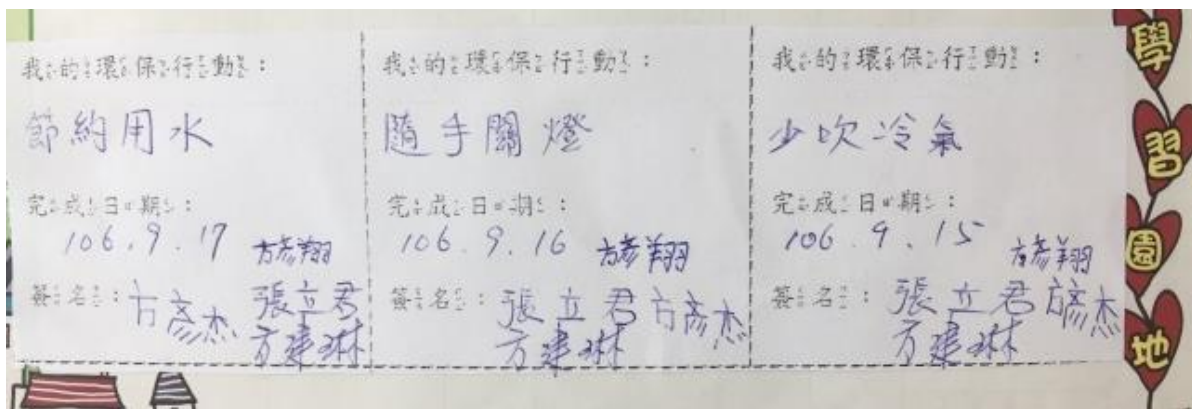 我的環保行動：
節約用水
完成日期：
106.9.17
方彥翔
簽名：方彥杰 張立君
方建琳
我的環保行動：
隨手關燈
完成日期：
106.9.16
方彥翔
簽名：張立君 方彥杰
方建琳
我的環保行動：
少吹冷氣
完成日期：
106.9.15
方彥翔
簽名：張立君 方彥杰
方建琳
學習園地